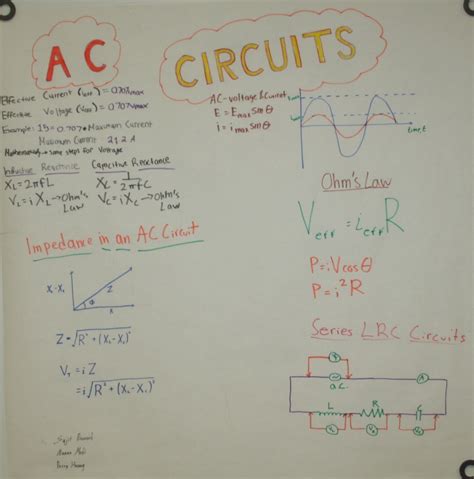 AC CIRCUITS
Effective Current (Ieff) = 0.707Imax
Effective Voltage (Veff) = 0.707Vmax
Example: 15 = 0.707 × Maximum Current
Maximum Current 21.2 A
same steps for Voltage
Inductive Reactance
XL = 2πfL
VL = i XL → Ohm's Law
Capacitive Reactance
XC = 1/2πfC
VC = i XC → Ohm's Law
AC-voltage & Current
E = Emax Sinθ
i = imax sinθ
time, t
Ohm's Law
Veff = ieff R
P = iVcosθ
P = i²R
Impedance in an AC Circuit
Z
Φ
R
Z = √R² + (XL - XC)²
VT = i Z
= i√R² + (XL - XC)²
Series LRC Circuits
a.c.
L R C